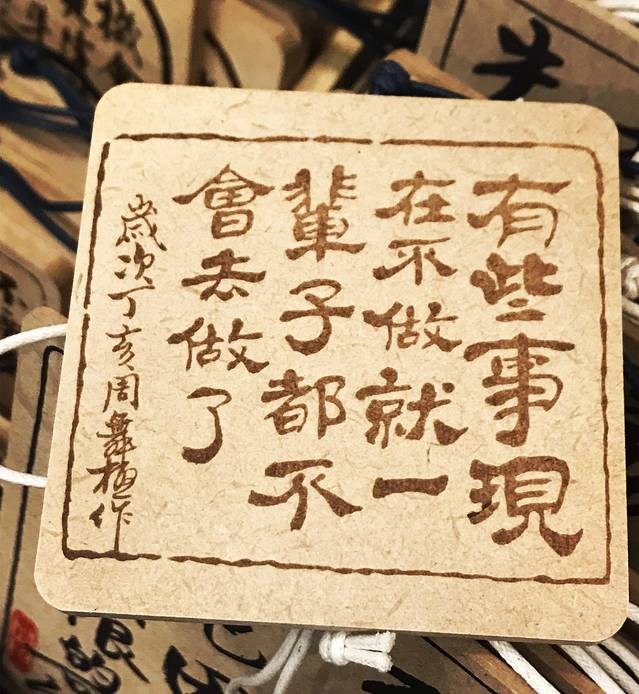 有些事現
在不做就一
輩子都不
會去做了
歲次丁亥周舞梅作